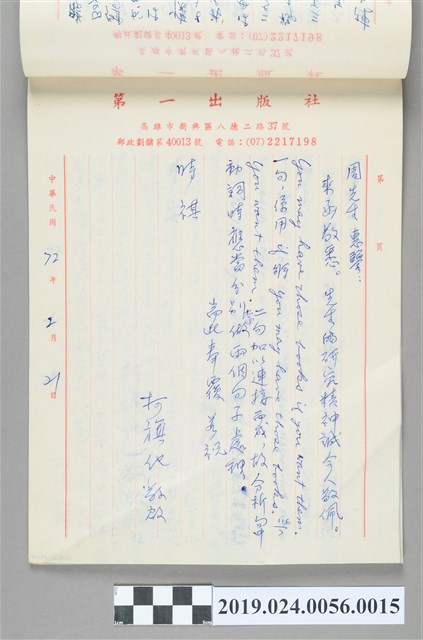 第一出版社
高雄市新興區八德二路37號
郵政劃儲第40013號 電話:(07)2217198
第 頁
周先生惠鑒:
來函敬悉。先生的研究精神誠令人敬佩。
You may have those books if you want them.
一句,係用 you may have those books. 以
You want them. 二句加以連接而成,故分析句
動詞時應當分別做兩個句子處理。
耑此奉覆 並祝
時祺
柯旗化敬啟
中華民國72年2月21日
2019.024.0056.0015